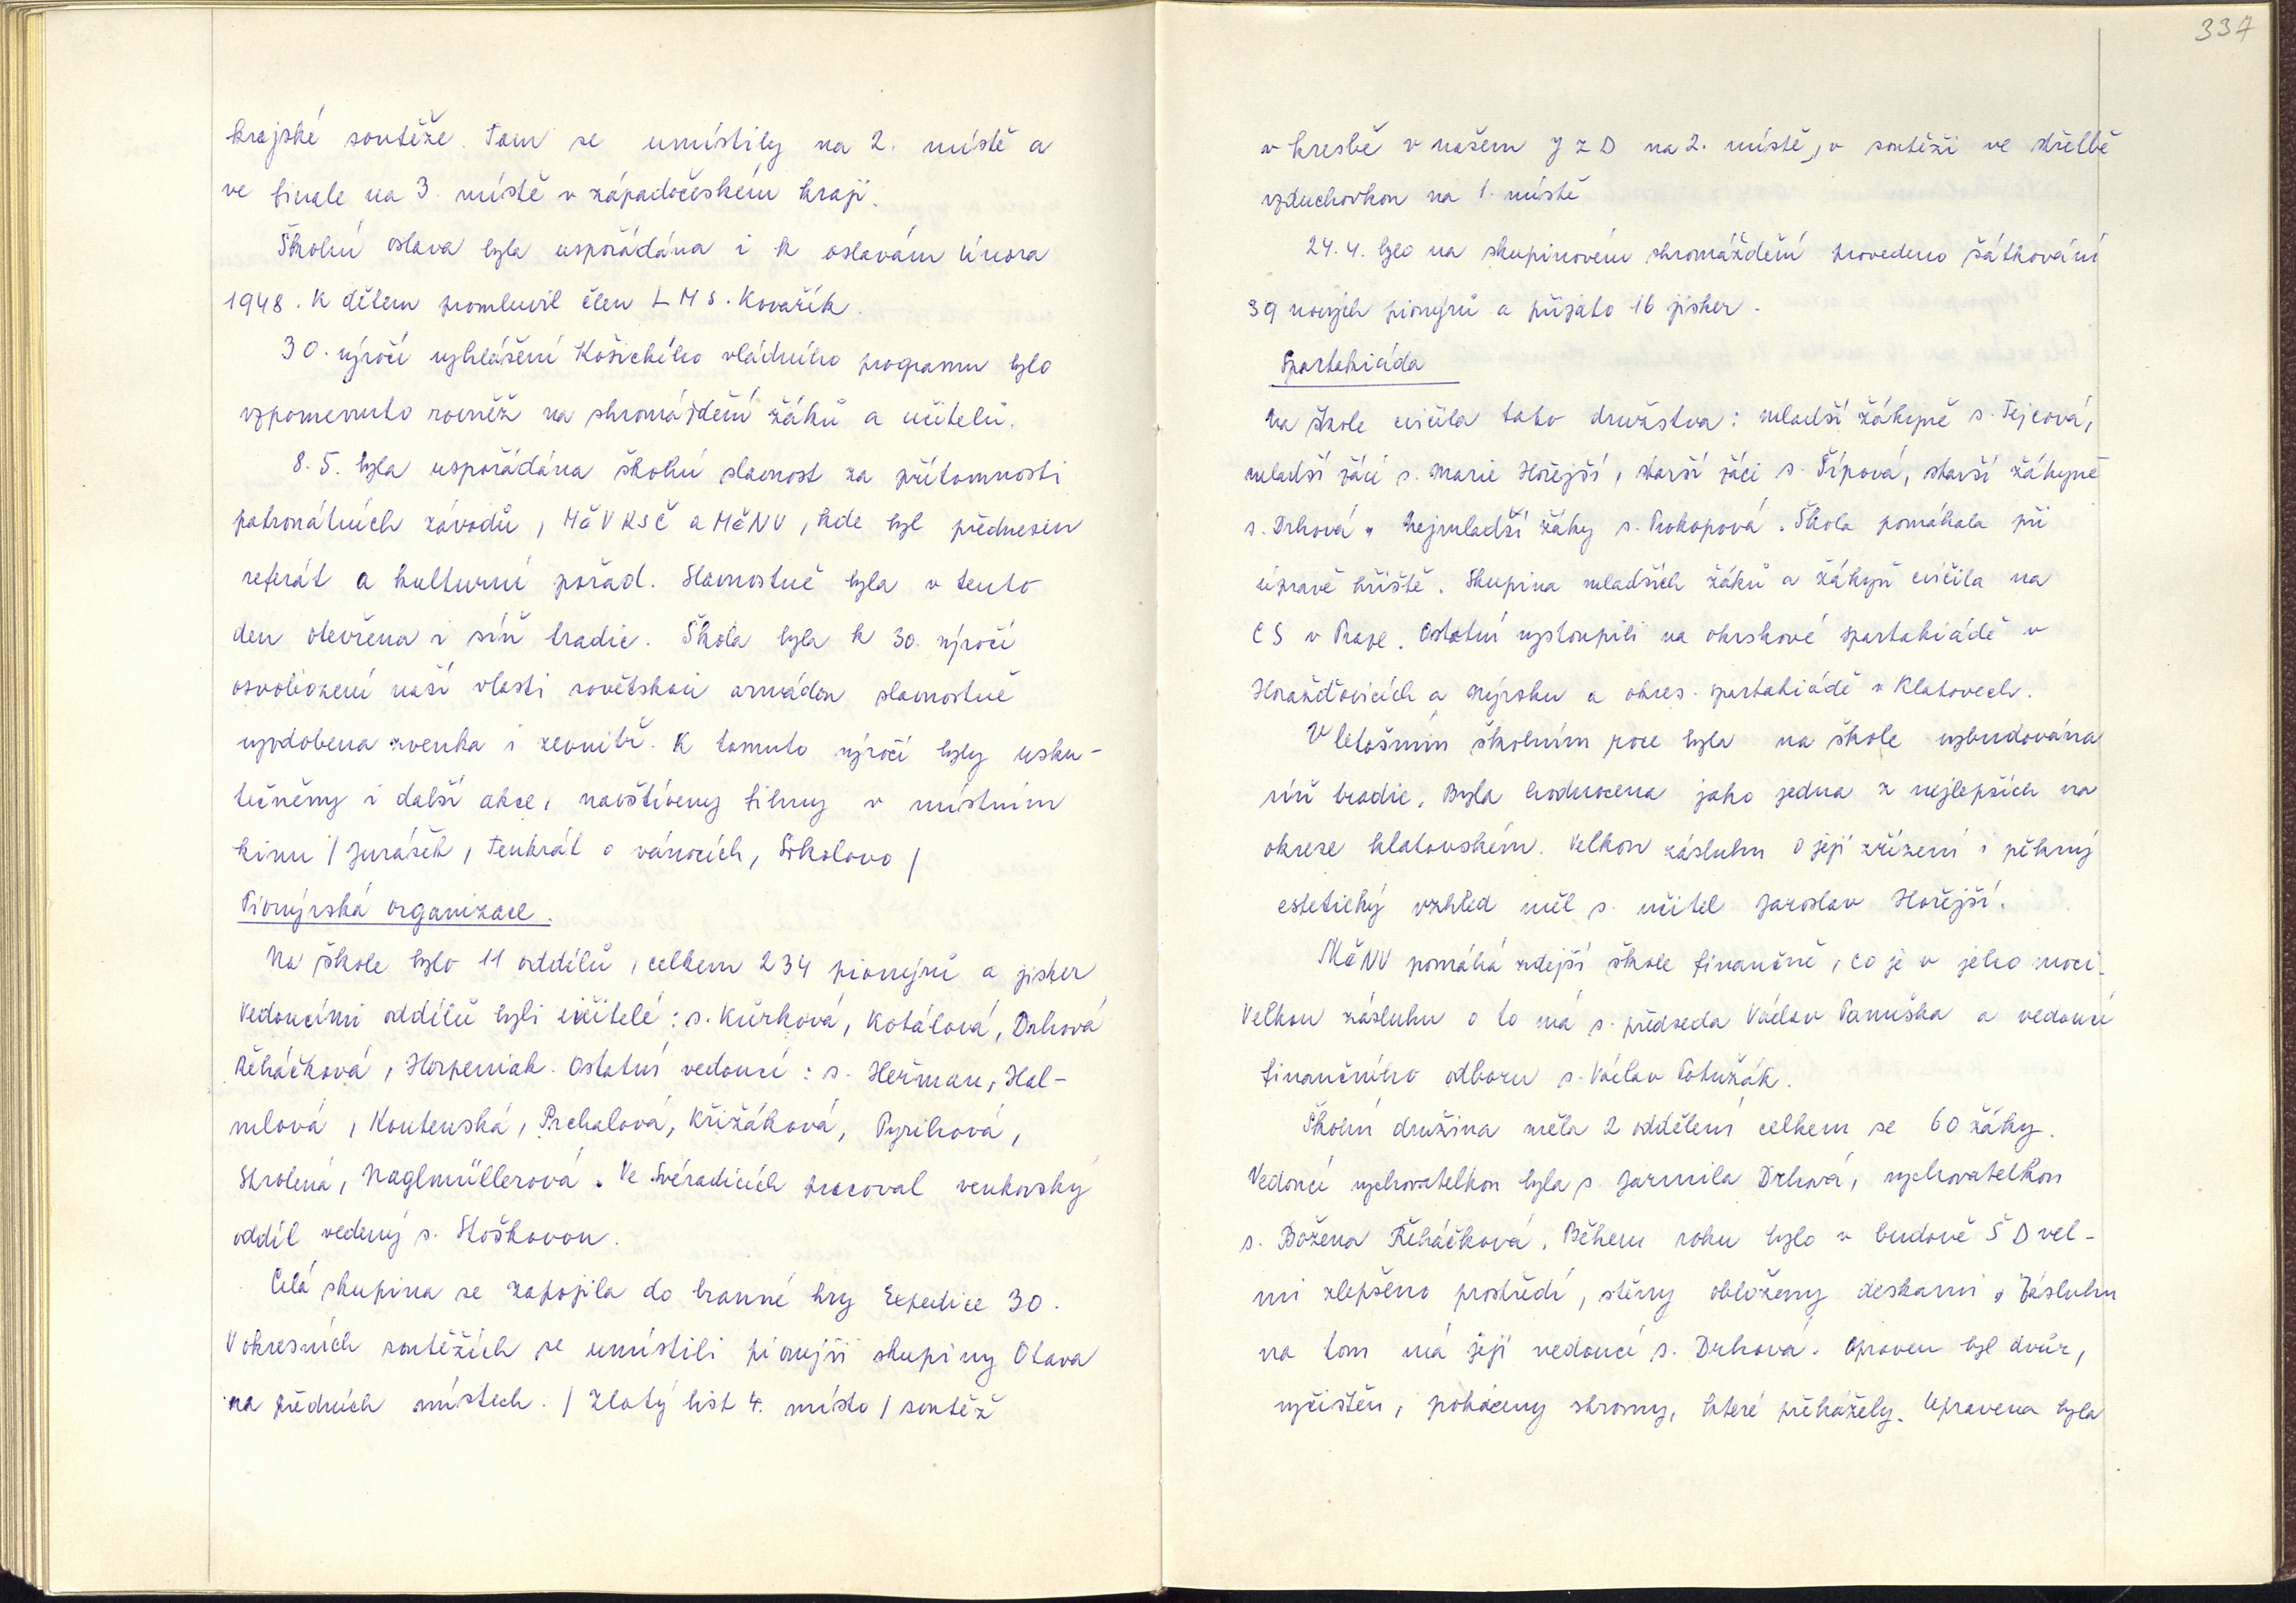 krajské soutěže. Tam se umístily na 2. místě a
ve finale na 3. místě v západočeském kraji.
Školní oslava byla uspořádána i k oslavám února
1948. K dětem promluvil člen LM s. Kovařík.
30. výročí vyhlášení Košického vládního programu bylo
vzpomenuto rovněž na shromáždění žáků a učitelů.
8. 5. byla uspořádána školní slavnost za přítomnosti
patronátních závodů, MěV KSČ a MěNV, kde byl přednesen
referát a kulturní pořad. Slavnostně byla v tento
den otevřena i síň tradic. Škola byla k 30. výročí
osvobození naší vlasti sovětskou armádou slavnostně
vyzdobena zvenka i zevnitř. K tomuto výročí byly usku-
tečněny i další akce, navštíveny filmy v místním
kinu / Jurášek, Tenkrát o vánocích, Sokolovo /
Pionýrská organizace.
Na škole bylo 11 oddílů, celkem 234 pionýrů a jisker
Vedoucími oddílů byli učitelé: s. Kůrková, Kotálová, Drhová
Řeháčková, Horpeniak. Ostatní vedoucí: s. Heřman, Hal-
mlová, Koutenská, Prchalová, Křižáková, Pyrihová,
Skolená, Naglmüllerová. Ve Svéradicích pracoval venkovský
oddíl vedený s. Stoškovou.
Celá skupina se zapojila do branné hry Expedice 30.
V okresních soutěžích se umístili pionýři skupiny Otava
na předních místech. / Zlatý list 4. místo / soutěž
337
v kresbě v našem JZD na 2. místě, v soutěži ve střelbě
vzduchovkou na 1. místě
24. 4. bylo na skupinovém shromáždění provedeno šátkování
39 nových pionýrů a přijato 16 jisker.
Spartakiáda
Na škole cvičila tato družstva: mladší žákyně s. Tejcová,
mladší žáci s. Marie Hořejší, starší žáci s. Šípová, starší žákyně
s. Drhová. Nejmladší žáky s. Prokopová. Škola pomáhala při
úpravě hřiště. Skupina mladších žáků a žákyň cvičila na
CS v Praze. Ostatní vystoupili na okrskové spartakiádě v
Horažďovicích a Nýrsku a okres. spartakiádě v Klatovech.
V letošním školním roce byla na škole vybudována
síň tradic. Byla hodnocena jako jedna z nejlepších na
okrese klatovském. Velkou zásluhu o její zřízení i pěkný
estetický vzhled měl s. učitel Jaroslav Hořejší.
MěNV pomáhá zdejší škole finančně, co je v jeho moci.
Velkou zásluhu o to má s. předseda Václav Panuška a vedoucí
finančního odboru s. Václav Potužák.
Školní družina měla 2 oddělení celkem se 60 žáky.
Vedoucí vychovatelkou byla s. Jarmila Drhová, vychovatelkou
s. Božena Řeháčková. Během roku bylo v budově ŠD vel-
mi zlepšeno prostředí, stěny obloženy deskami. Zásluhu
na tom má její vedoucí s. Drhová. Opraven byl dvůr,
vyčištěn, pokáceny stromy, které překážely. Upravena byla